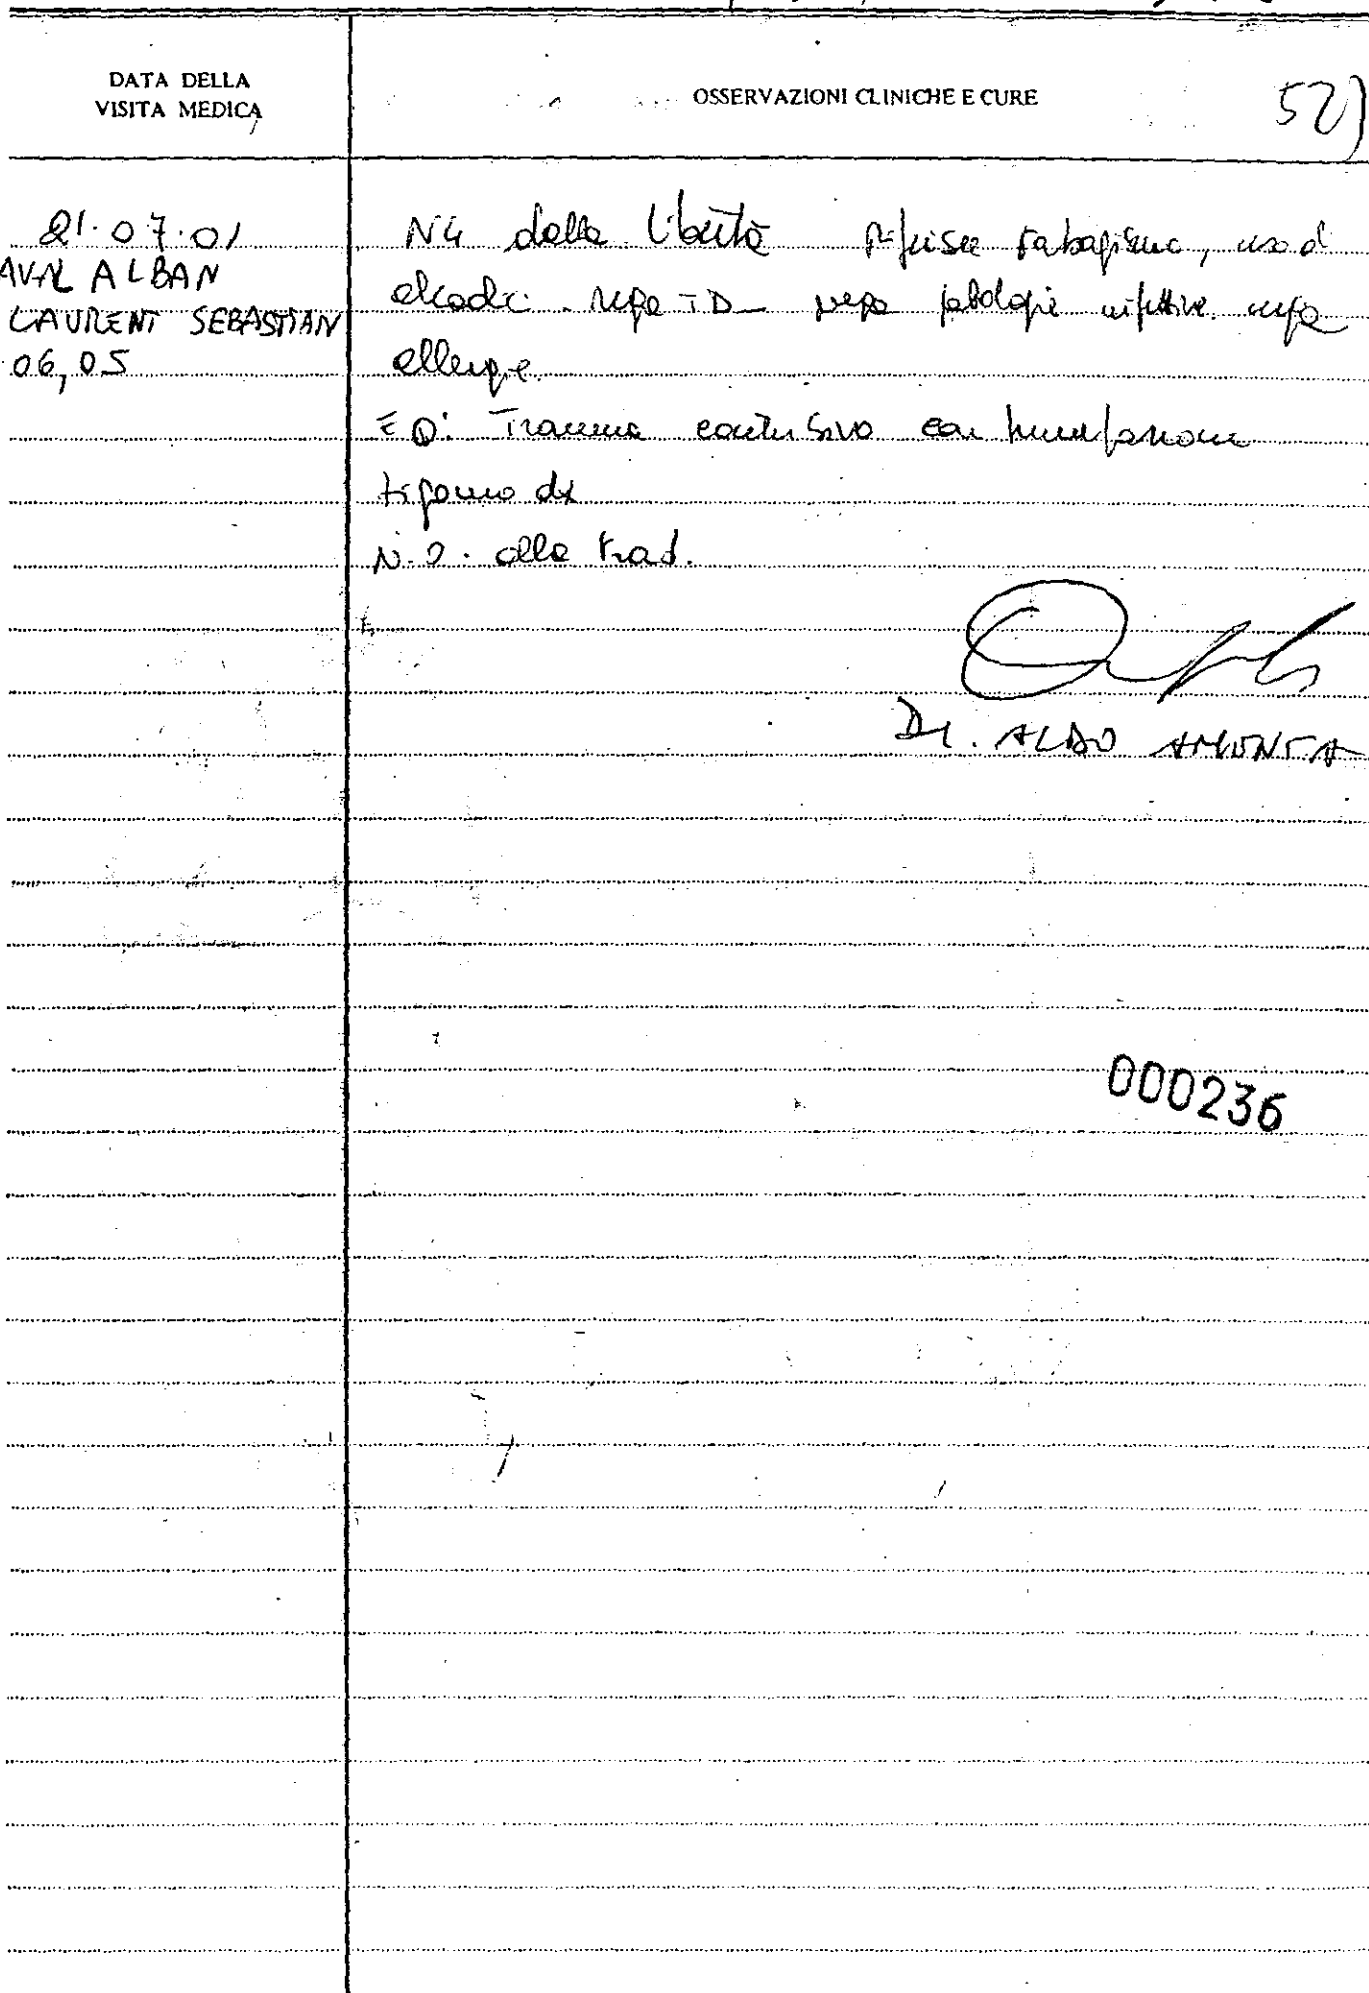 DATA DELLA
VISITA MEDICA
OSSERVAZIONI CLINICHE E CURE
52)
21.07.01
ALBAN
LAURENT SEBASTIAN
06,05
dalla libertà riferisce tabagismo, uso di
alcolici. nega TD nega patologie infettive. nega
allergie.
EO: Trauma contusivo con tumefazione
zigomo dx
N.O. alla trad.
Dr. ALDO AMENTA
000236